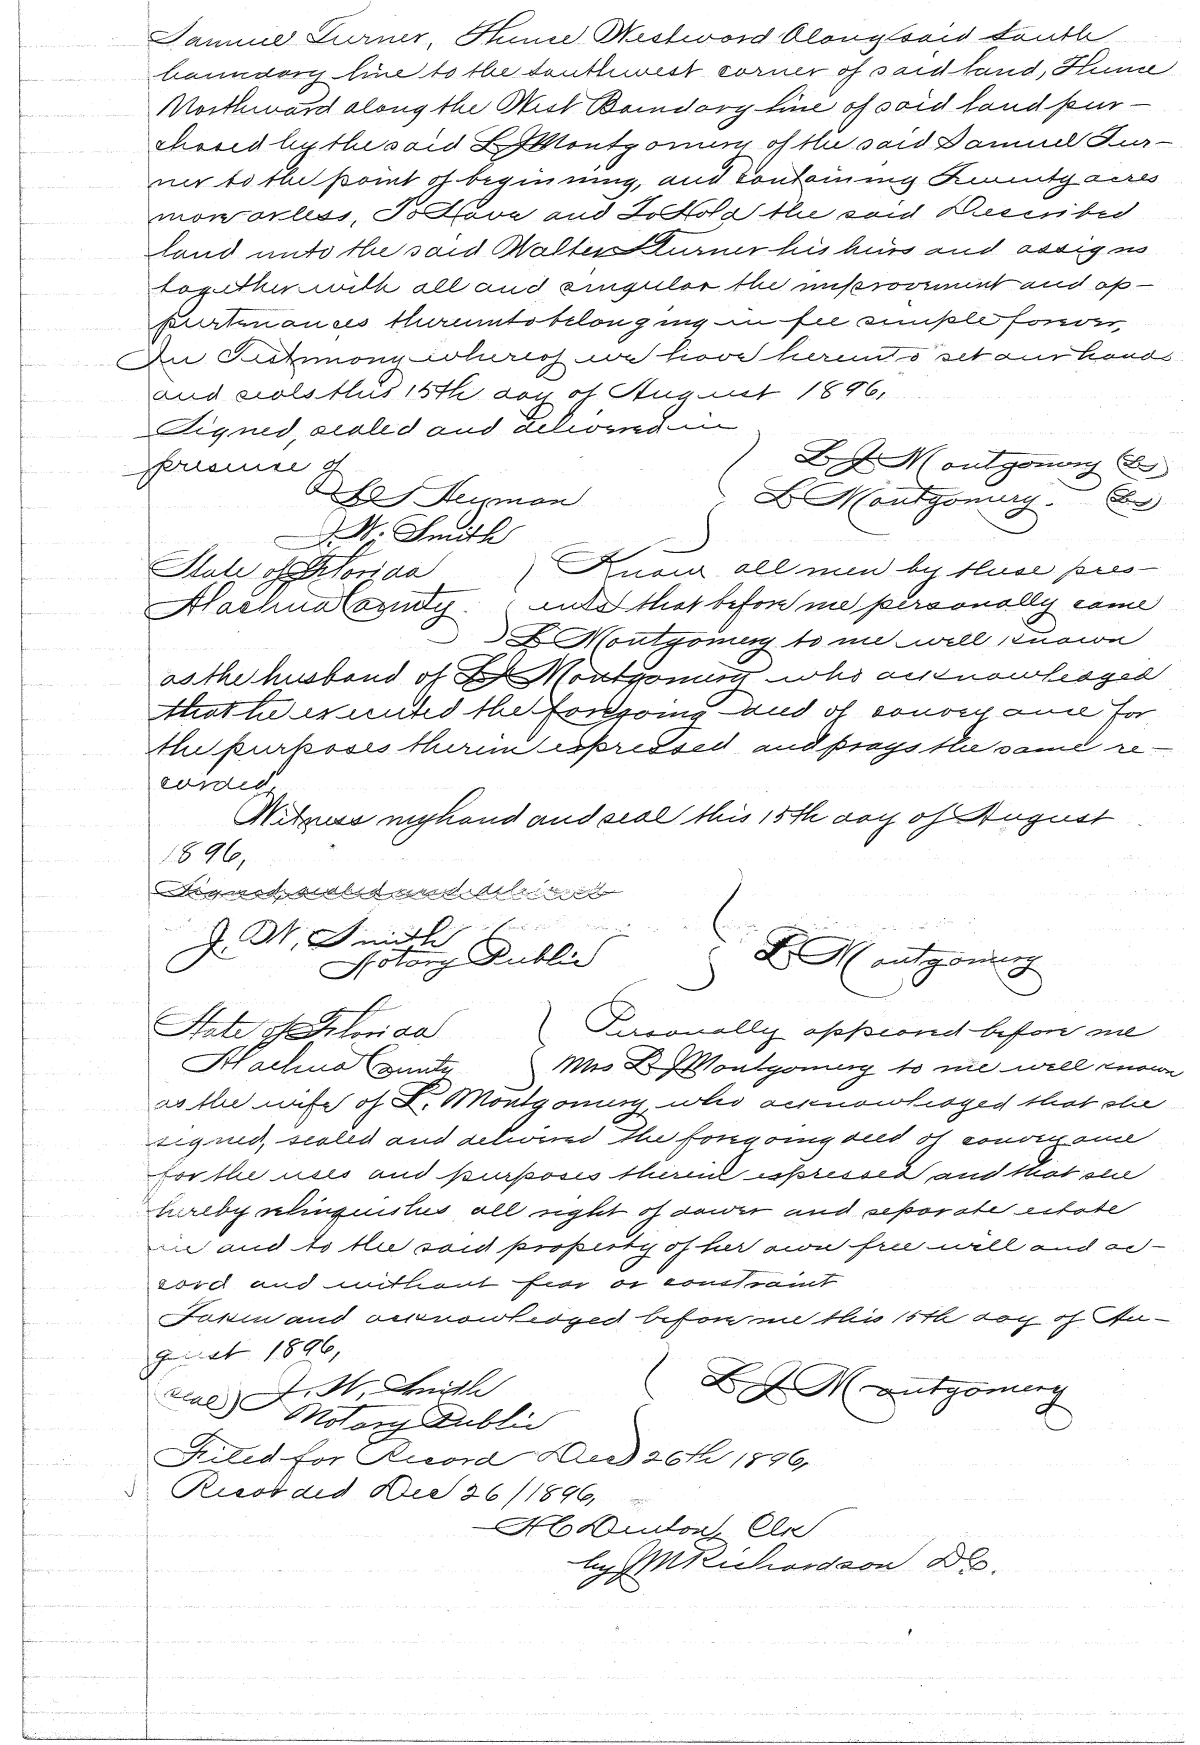 Samuel Turner, Thence Westward Along said South
boundary line to the Southwest corner of said land, Thence
Northward along the West Boundary line of said land pur-
chased by the said L J Montgomery of the said Samuel Tur-
ner to the point of beginning, and containing Twenty acres
more or less, To Have and To Hold the said Described
land unto the said Walter Turner his heirs and assigns
together with all and singular the improvement and ap-
purtenances thereunto belonging in fee simple forever,
In Testimony whereof we have hereunto set our hands
and seals this 15th day of August 1896,
Signed, sealed and delivered in
presence of
L J Montgomery (Ls)
Heyman
L Montgomery. (Ls)
J. W. Smith
State of Florida
Alachua County.
Know all men by these pres-
ents that before me personally came
L Montgomery to me well known
as the husband of L J Montgomery who acknowledged
that he executed the foregoing deed of conveyance for
the purposes therein expressed and prays the same re-
corded,
Witness my hand and seal this 15th day of August
1896,
Signed, sealed and delivered
J. W. Smith
Notary Public
L Montgomery
State of Florida
Alachua County
Personally appeared before me
Mrs L J Montgomery to me well known
as the wife of L. Montgomery, who acknowledged that she
signed, sealed and delivered the foregoing deed of conveyance
for the uses and purposes therein expressed and that she
hereby relinquishes all right of dower and separate estate
in and to the said property of her own free will and ac-
cord and without fear or constraint
Taken and acknowledged before me this 15th day of Au-
gust 1896,
seal) J. W. Smith
Notary Public
L J Montgomery
Filed for Record Dec 26th 1896,
Recorded Dec 26/1896,
H C Denton, Clk
by J M Richardson D C.